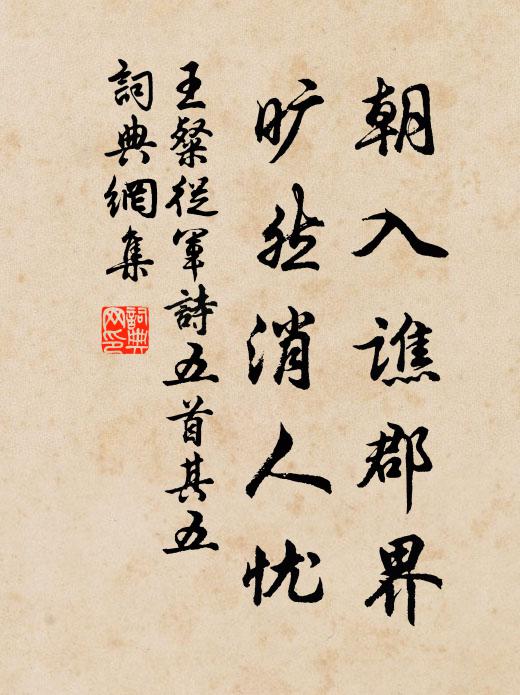 朝入譙郡界
旷然消人忧
王粲從軍詩五首其五
詞典網集
詞典网印